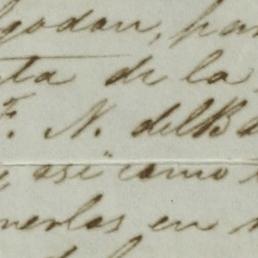 godan, par
ta de la
F. N. del Ba
y así como
nerlos en